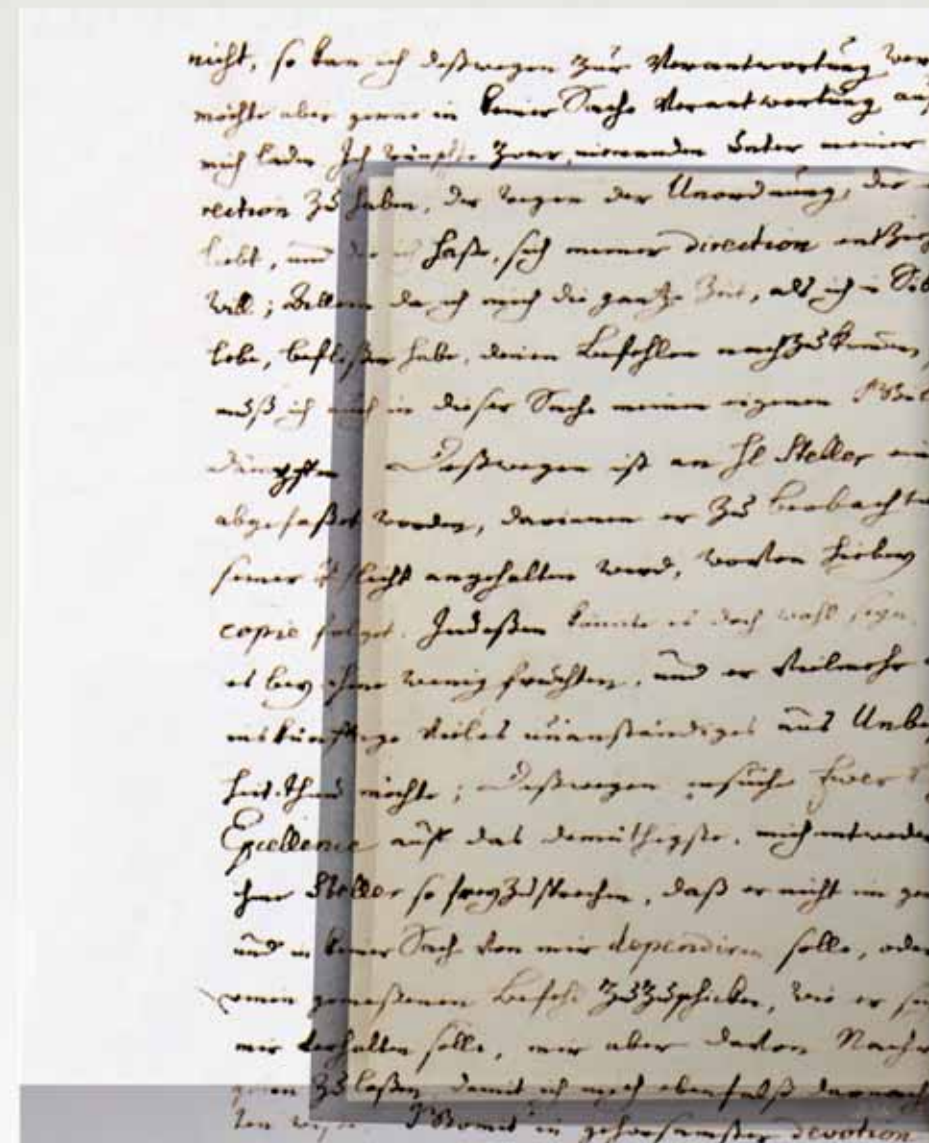 nicht, so kan ich deßwegen zur Verantwortung
möchte aber gerne in keiner Sache Verantwortung auf
mich laden Ich wünschte zwar, niemanden unter meiner
rection zu haben, der wegen der Unordnung, die
liebt, und die ich haße, sich meiner direction
will; Allein da ich mich die gantze Zeit, als ich in
lebe, befließen habe, denen Befehlen nachzukommen,
muß ich auch in dieser Sache meinen eigenen
dämpffen Deßwegen ist an H. Steller
abgefaßet worden, darinnen er zu
seiner Pflicht angehalten wird, wovon hiebey
copie folget. Indeßen könnte es doch wohl seyn,
es bey ihm wenig fruchten, und er vielmehr
ins künfftige vieles unanständiges aus
heit thun möchte; Deßwegen ersuche Ewer
Excellence auff das demüthigste, mich entweder
ihn Steller so frey zu sprechen, daß er nicht im
und in keiner Sache von mir dependiren solle, oder
einen gemeßenen Befehl zuzuschicken, wie er
mir verhalten solle, mir aber davon
zu laßen, damit ich mich ebenfalß darnach
Womit in gehorsamster devotion